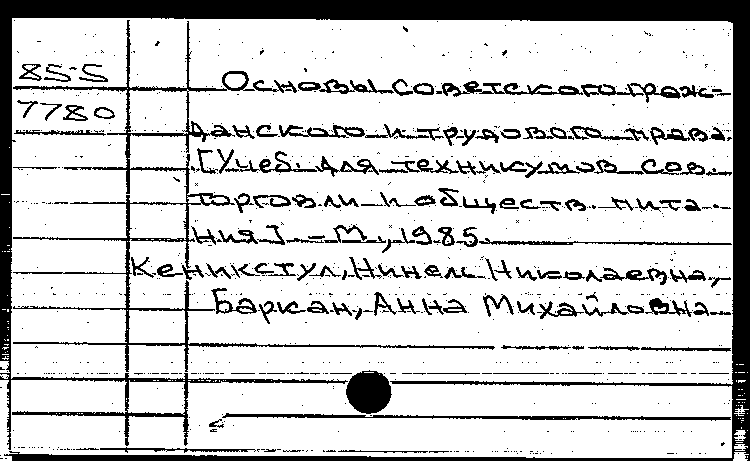 85-5
Основы советского граж-
7780
данского и трудового права.
[Учеб. для техникумов сов.
торговли и обществ. пита-
ния]. - М., 1985.
Кеникстул, Нинель Николаевна,
Баркан, Анна Михайловна